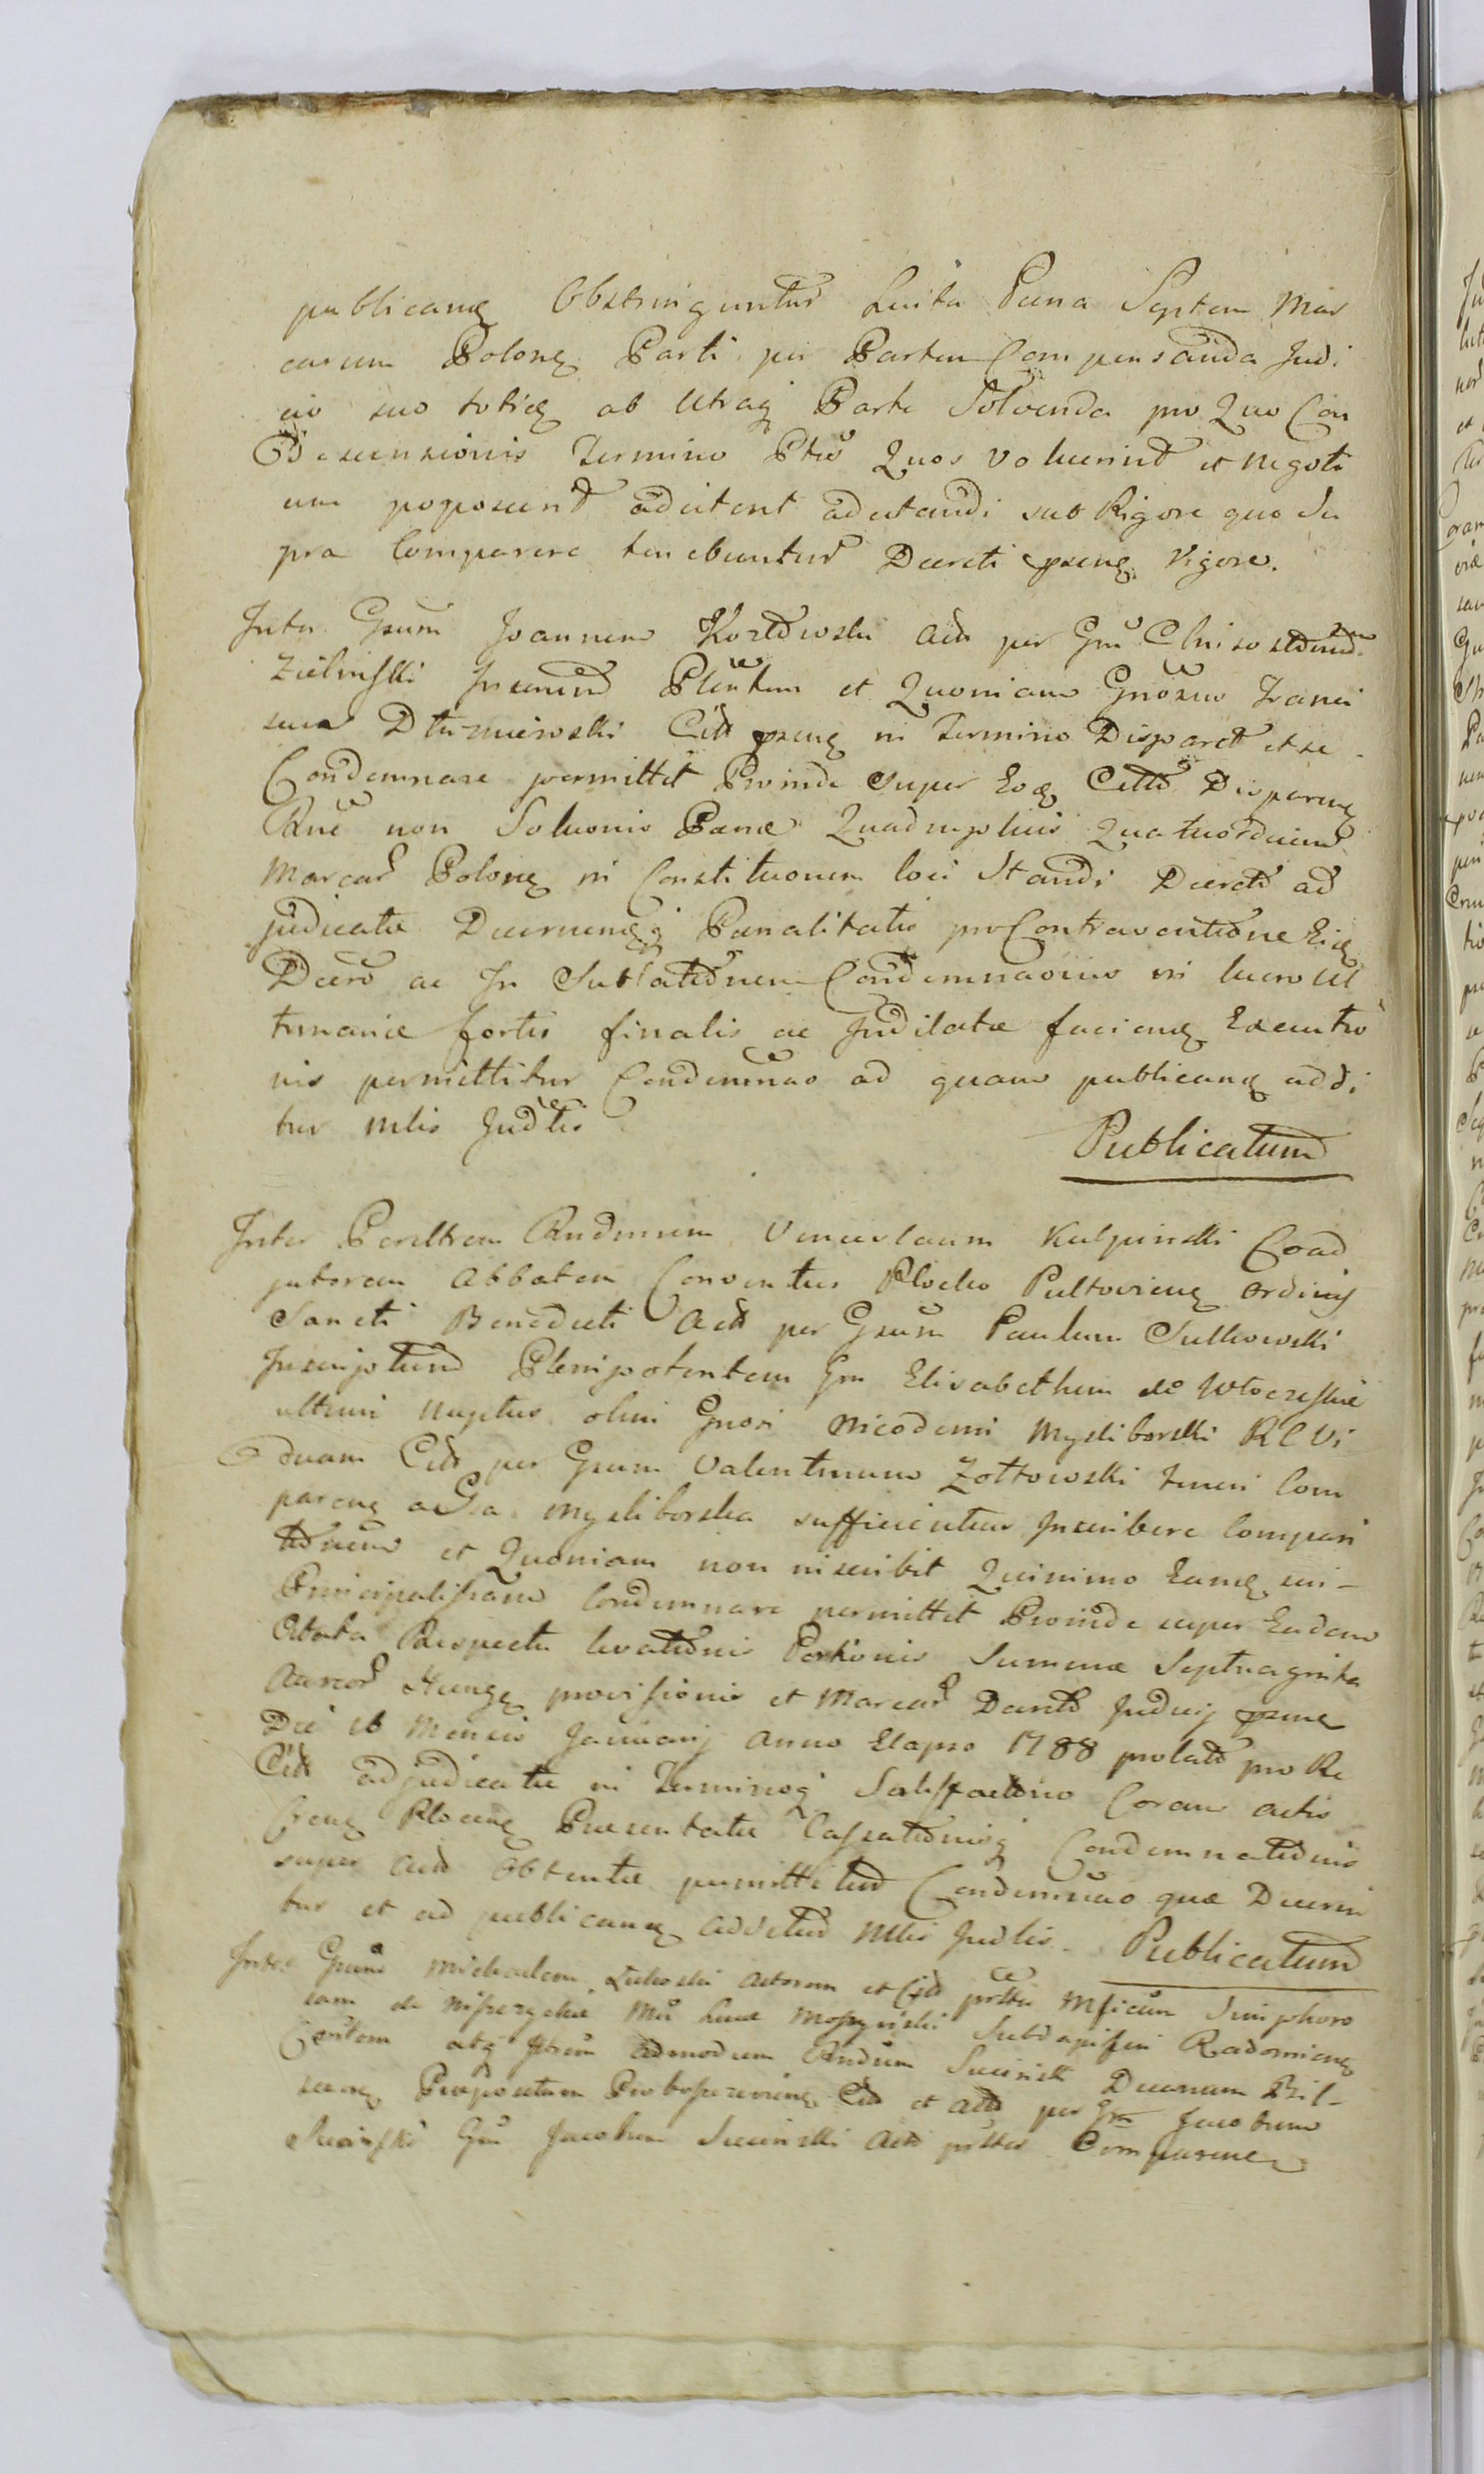 publicanę Obstringuntur Luita Pœna Septem Mar
carum Polonę Parti per Partem Compensanda Judi
cio suo totięs ab Utraq Parte Solvenda pro Quo Con
Descensionis Termino Ptes Quos Voluerint et Negoti
um poposcerit adcitent adcitandi sub Rigore quo Su
pra Comparere tenebuntur Decreti psenę Vigore.
Inter Gsum Joannem Kozłowski Act per Gm Chrisostomum
Zielinski Inscriptum Plentem et Quoniam Gnosus Franci
scus Dłuzniewski Citt psenę in Termino Disparet et se
Condemnare permittit Proinde Super Eoę Citto Disparenę
Rne non Soluonis Pœnæ Quadruplicis Quatuordecim
Marcar Polonę in Constituonem loci Standi Decreto ad
judicatæ Decernenęq Pœnalitatis pro Contraventione Eię
Decro ac In Sublationem Condemnaonis in lucro Ul
timariæ fortis finalis ac Indilatæ facienę Executio
nis permittitur Condemnao ad quam publicanę addi
tur Mlis Judlis
Publicatum
Inter Perilltrem Rndmum Venceslaum Kulpinski Coad
jutorem Abbatem Conventus Plocko Pultovienę Ordinis
Sancti Benedicti Act per Gsum Paulum Sulkowski
Inscriptum Plenipotentem Gm Elisabetham de
ultimi Nuptus olim Gnosi Nicodemi Mysliborski RC Vi
duam Citt per Gsum Valentinum Zołtowski Tmini Com
parenę a Gsa Mysliborska sufficienter Inscribere Compari
tionem et Quoniam non inscribit Quinimo Eamę sui
Principalissam Condemnare permittit Proinde super Eadem
Citata Respectu levationis Portionis Summæ Septuaginta
Aureor Hungę provisionis et Marcar Damto Judicij psenę
Die 16 Mensis Januarij Anno Elapso 1788 prolato pro Re
Citt adjudicatæ in Terminoq Satisfactionis Coram Actis
Crenę Plocenę Presentatæ Cassationisq Condemnationis
super Act Obtentæ permittitur Condemnao quæ Decerni
tur et ad publicanę additur Mlis Judlis. Publicatum
Inter Gsum Michaelem Actorem et Citt Mficum Simphoro
sam de Mu Lucæ Subdapiferi Radomienę
Contem atq Admodum Rndum Sucinski Decanum Biel
scenę Præpositum Citt et Act per Gm Jacobum
Sucinski Gm Jacobum Sucinski Act Comparenę